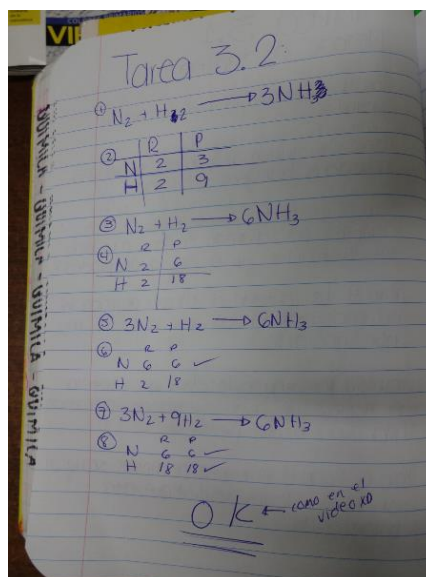 VI
QUIMICA - QUIMICA - QUIMICA - QUIMICA
Tarea 3.2:
① N₂ + H₂ → 3NH₃
② R P
N 2 3
H 2 9
③ N₂ + H₂ → 6NH₃
④ R P
N 2 6
H 2 18
⑤ 3N₂ + H₂ → 6NH₃
⑥ R P
N 6 6 ✓
H 2 18
⑦ 3N₂ + 9H₂ → 6NH₃
⑧ R P
N 6 6 ✓
H 18 18 ✓
OK ← como en el
video XD